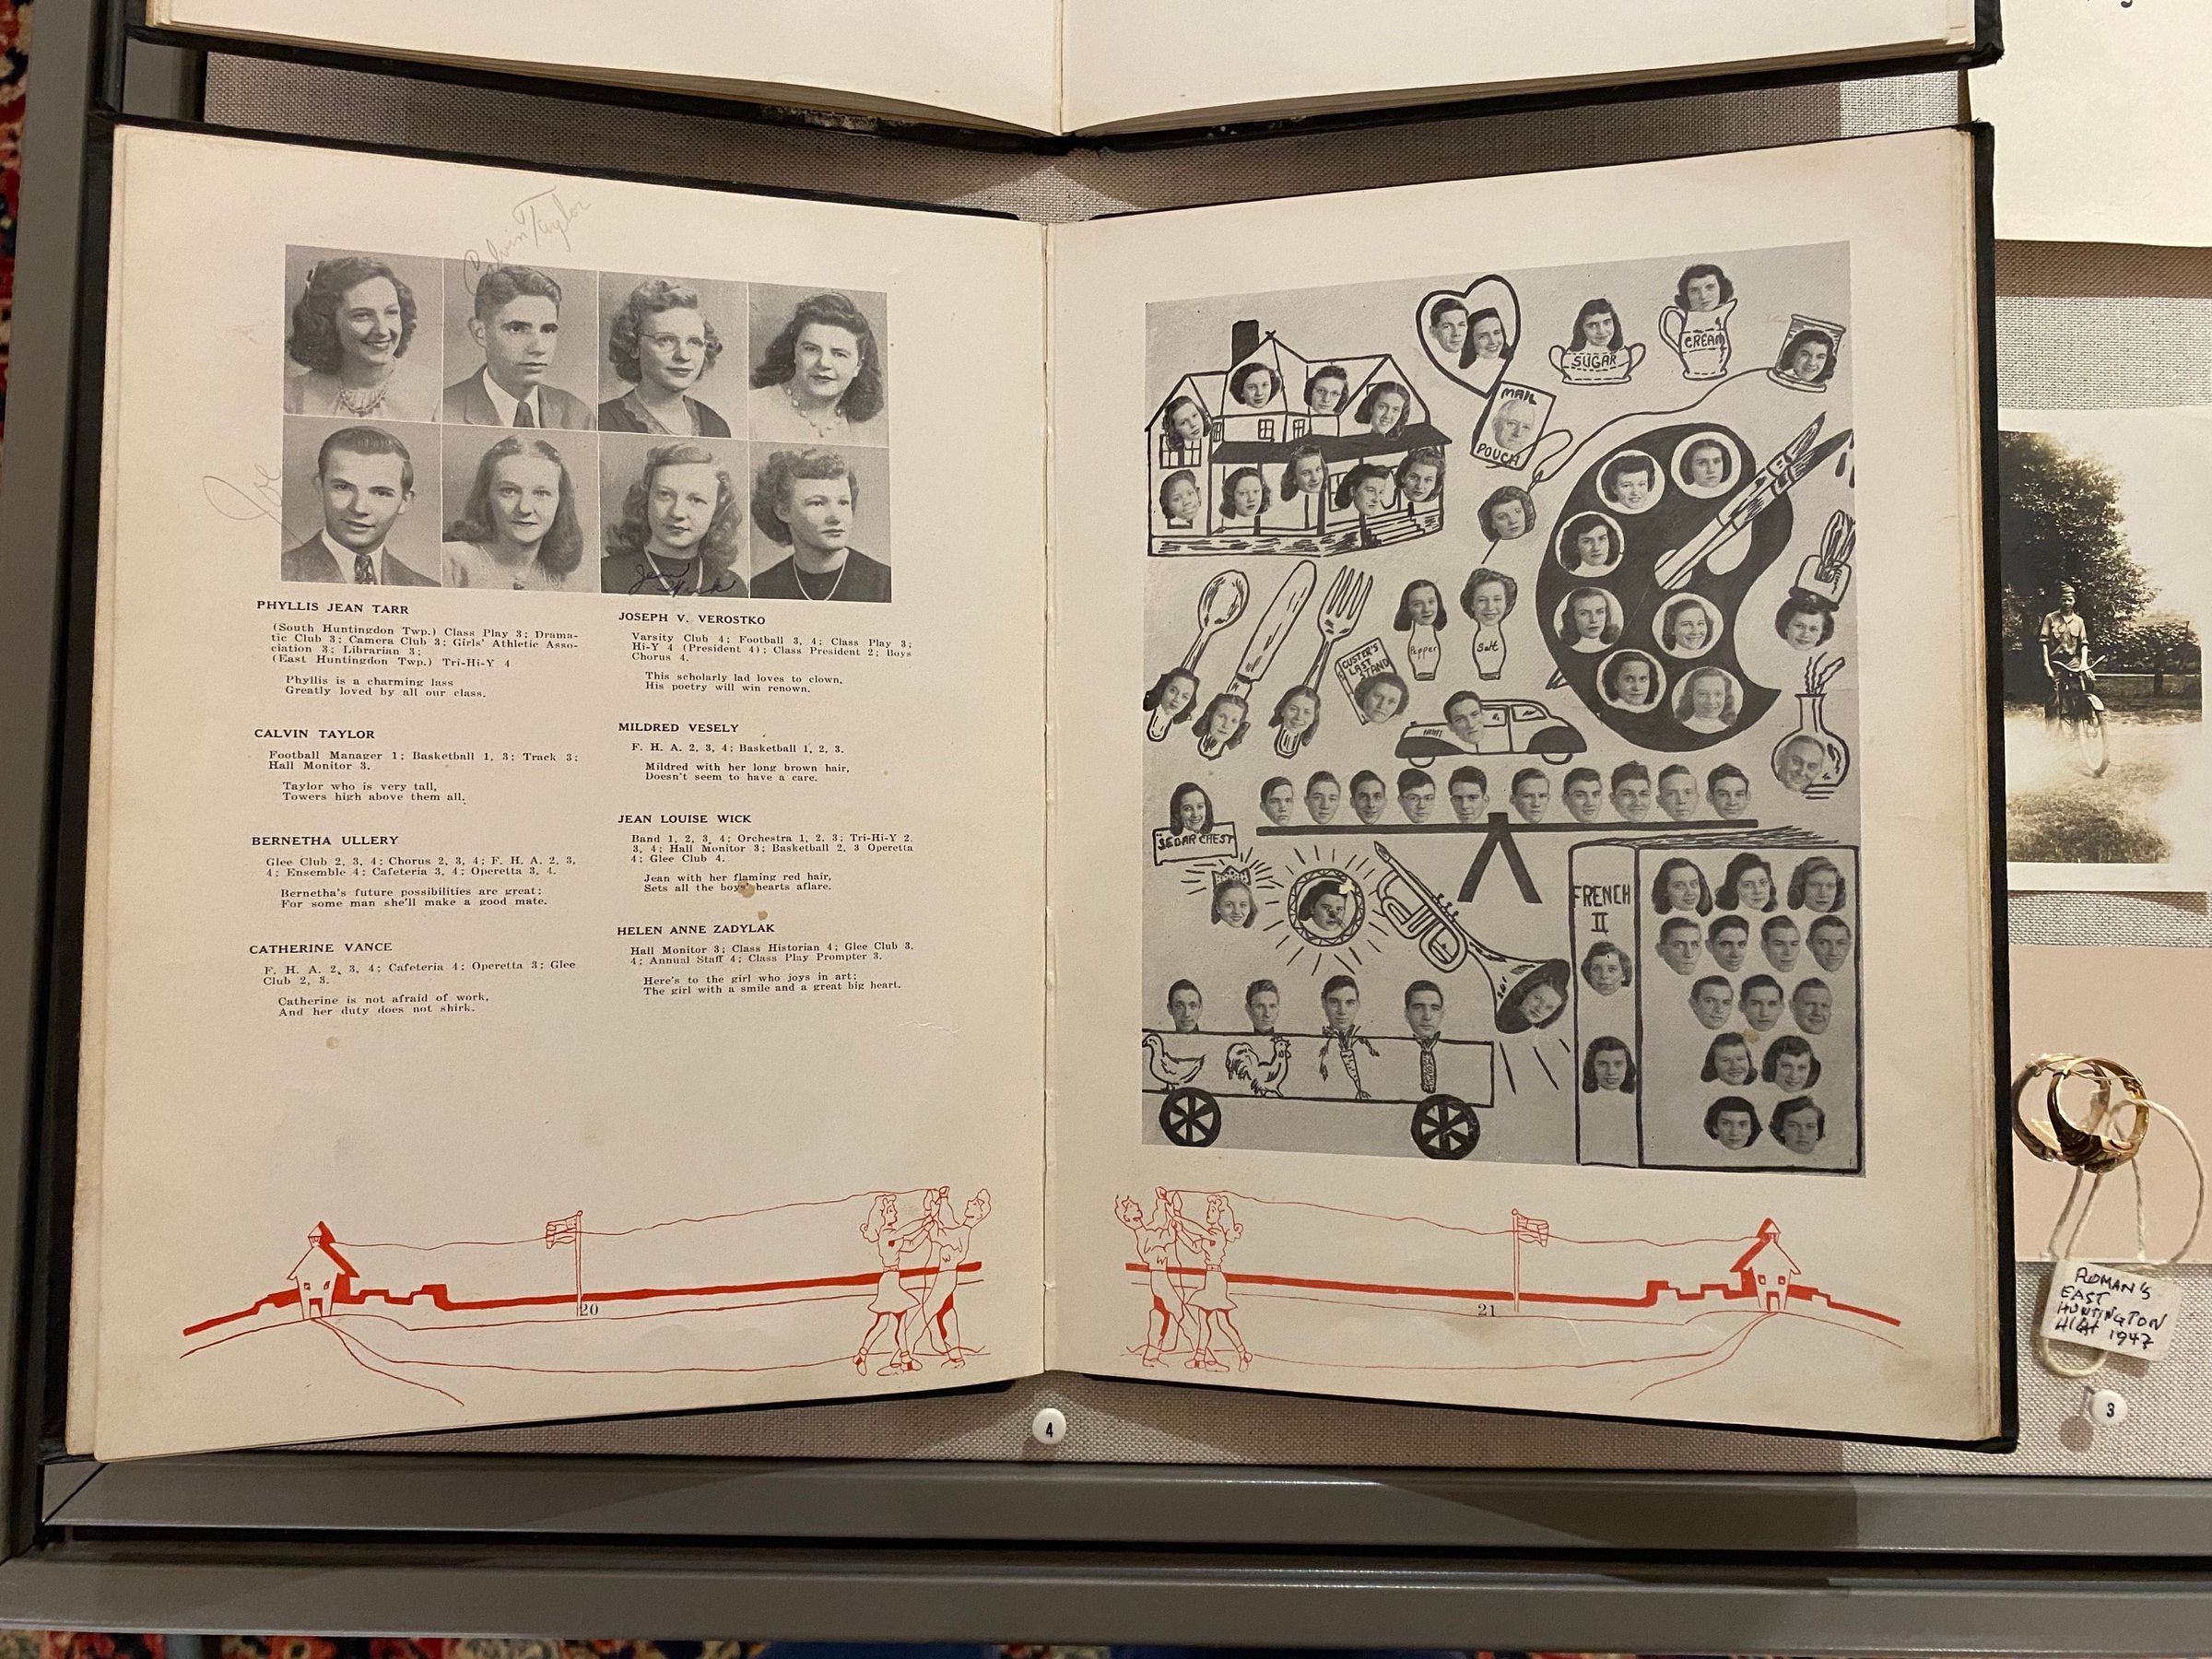 Calvin Taylor
Joe
Jean Wick
PHYLLIS JEAN TARR
(South Huntingdon Twp.) Class Play 3; Drama-
tic Club 3; Camera Club 3; Girls' Athletic Asso-
ciation 3; Librarian 3;
(East Huntingdon Twp.) Tri-Hi-Y 4
Phyllis is a charming lass
Greatly loved by all our class.
CALVIN TAYLOR
Football Manager 1; Basketball 1, 3; Track 3;
Hall Monitor 3.
Taylor who is very tall,
Towers high above them all.
BERNETHA ULLERY
Glee Club 2, 3, 4; Chorus 2, 3, 4; F. H. A. 2, 3,
4; Ensemble 4; Cafeteria 3, 4; Operetta 3, 4.
Bernetha's future possibilities are great;
For some man she'll make a good mate.
CATHERINE VANCE
F. H. A. 2, 3, 4; Cafeteria 4; Operetta 3; Glee
Club 2, 3.
Catherine is not afraid of work,
And her duty does not shirk.
JOSEPH V. VEROSTKO
Varsity Club 4; Football 3, 4; Class Play 3;
Hi-Y 4 (President 4); Class President 2; Boys
Chorus 4.
This scholarly lad loves to clown,
His poetry will win renown.
MILDRED VESELY
F. H. A. 2, 3, 4; Basketball 1, 2, 3.
Mildred with her long brown hair,
Doesn't seem to have a care.
JEAN LOUISE WICK
Band 1, 2, 3, 4; Orchestra 1, 2, 3; Tri-Hi-Y 2,
3, 4; Hall Monitor 3; Basketball 2, 3 Operetta
4; Glee Club 4.
Jean with her flaming red hair,
Sets all the boys' hearts aflare.
HELEN ANNE ZADYLAK
Hall Monitor 3; Class Historian 4; Glee Club 3,
4; Annual Staff 4; Class Play Prompter 3.
Here's to the girl who joys in art;
The girl with a smile and a great big heart.
20
SUGAR
CREAM
MAIL
POUCH
Pepper
Salt
CUSTER'S
LAST
STAND
SEDAR CHEST
FRENCH
II
21
4
ROMAN'S
EAST
HUNTINGTON
HIGH 1947
3